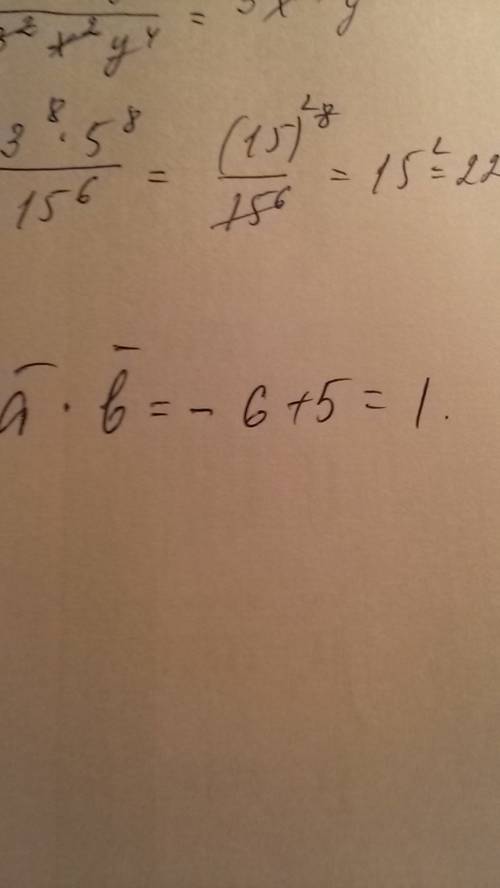 3² x² y⁴ = 3x y
3⁸ · 5⁸ / 15⁶ = (15)²⁸ / 15⁶ = 15² = 22
a̅ · b̅ = - 6 + 5 = 1.